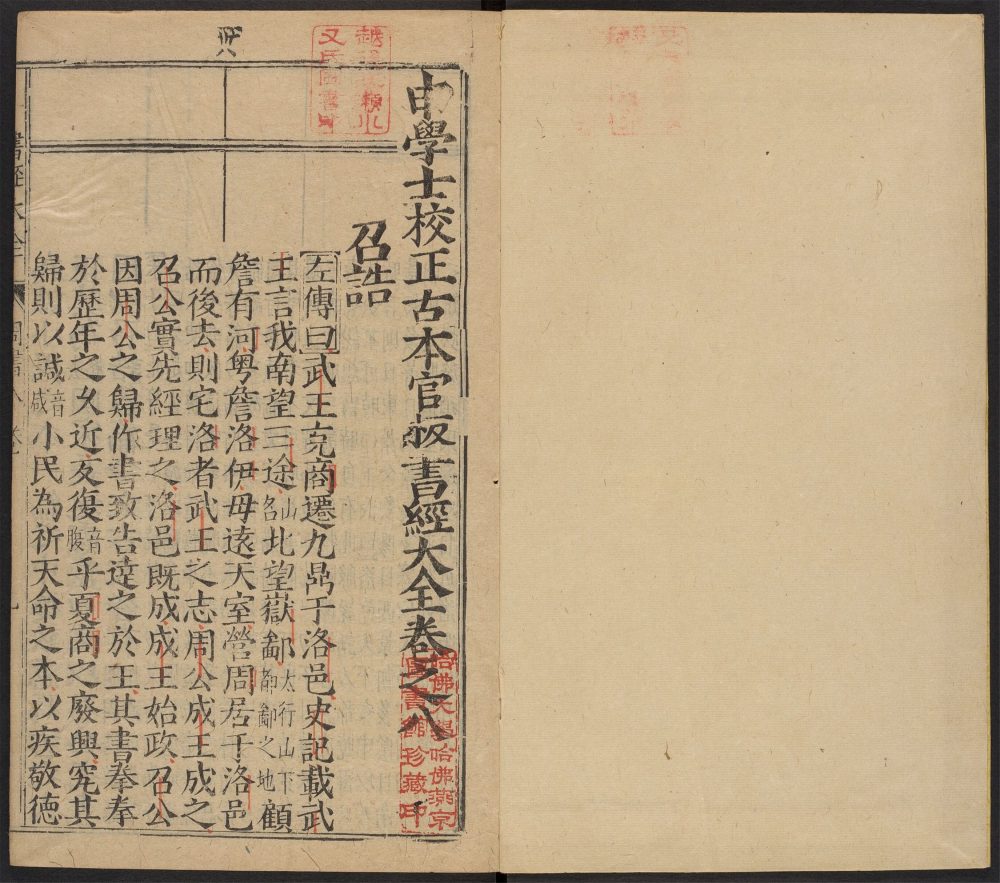 申學士校正古本官板書經大全卷之八
召誥
左傳曰武王克商遷九鼎于洛邑史記載武
王言我南望三途山名北望嶽鄙太行山下都鄙之地顧
詹有河粤詹洛伊毋遠天室營周居于洛邑
而後去則宅洛者武王之志周公成王成之
召公實先經理之洛邑既成成王始政召公
因周公之歸作書致告達之於王其書拳拳
於歷年之久近反復音腹乎夏商之廢興究其
歸則以諴音咸小民為祈天命之本以疾敬德
書經大全
哈佛大學哈佛燕京
圖書館珍藏印